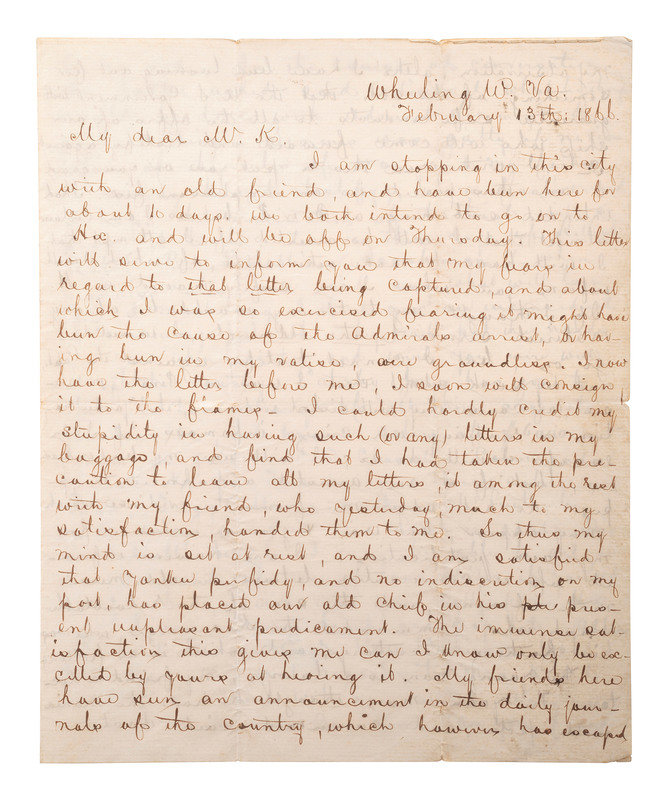 Wheeling W. Va.
February 13th: 1866.
My dear Mr. K.
I am stopping in this city
with an old friend, and have been here for
about 10 days. We both intend to go on to
and will be off on Thursday. This letter
will serve to inform you that my fears in
regard to that letter being captured, and about
which I was so excercised fearing it might have
been the cause of the Admirals arrest, or hav-
ing been in my valise, were groundless. I now
have the letter before me, I soon will consign
it to the flames - I could hardly credit my
stupidity in having such (or any) letters in my
baggage and find that I had taken the pre-
caution to leave all my letters, it among the rest
with my friend, who yesterday, much to my
satisfaction, handed them to me. So thus my
mind is set at rest, and I am satisfied
that Yankee perfidy, and no indiscretion on my
part, has placed our old chief in his pres-
ent unpleasant predicament. The immense sat-
isfaction this gives me can I know only be ex-
celled by yours at hearing it. My friends here
have seen an announcement in the daily jour-
nals of the country, which however has escaped